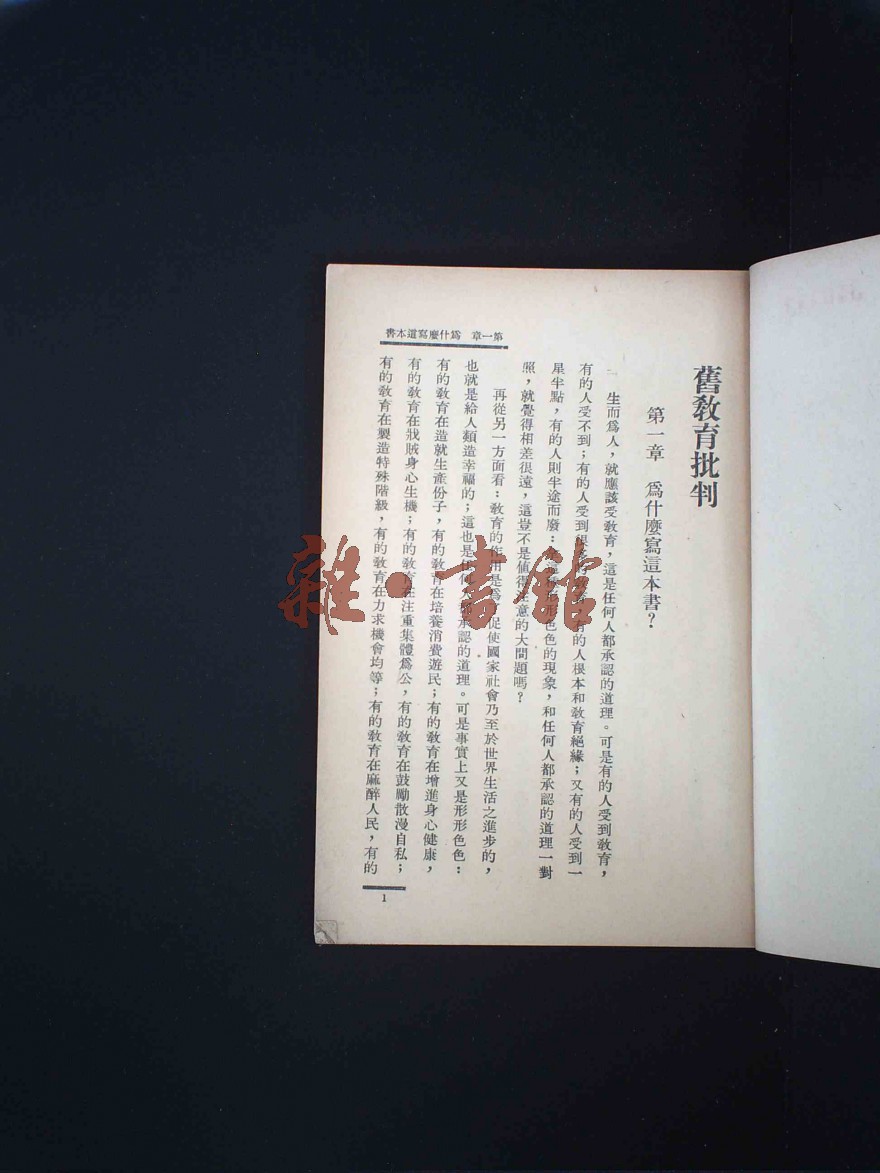 舊教育批判
第一章　爲什麼寫這本書？
生而爲人，就應該受教育，這是任何人都承認的道理。可是有的人受到教育，
有的人受不到；有的人受到很 有的人根本和教育絕緣；又有的人受到一
星半點，有的人則半途而廢： 形色色的現象，和任何人都承認的道理一對
照，就覺得相差很遠，這豈不是值得注意的大問題嗎？
再從另一方面看：教育的作用是爲 促使國家社會乃至於世界生活之進步的，
也就是給人類造幸福的；這也是任何人都承認的道理。可是事實上又是形形色色：
有的教育在造就生產份子，有的教育在培養消費遊民；有的教育在增進身心健康，
有的教育在戕賊身心生機；有的教育在注重集體爲公，有的教育在鼓勵散漫自私；
有的教育在製造特殊階級，有的教育在力求機會均等；有的教育在麻醉人民，有的
第一章　爲什麼寫這本書
1
雜·書館